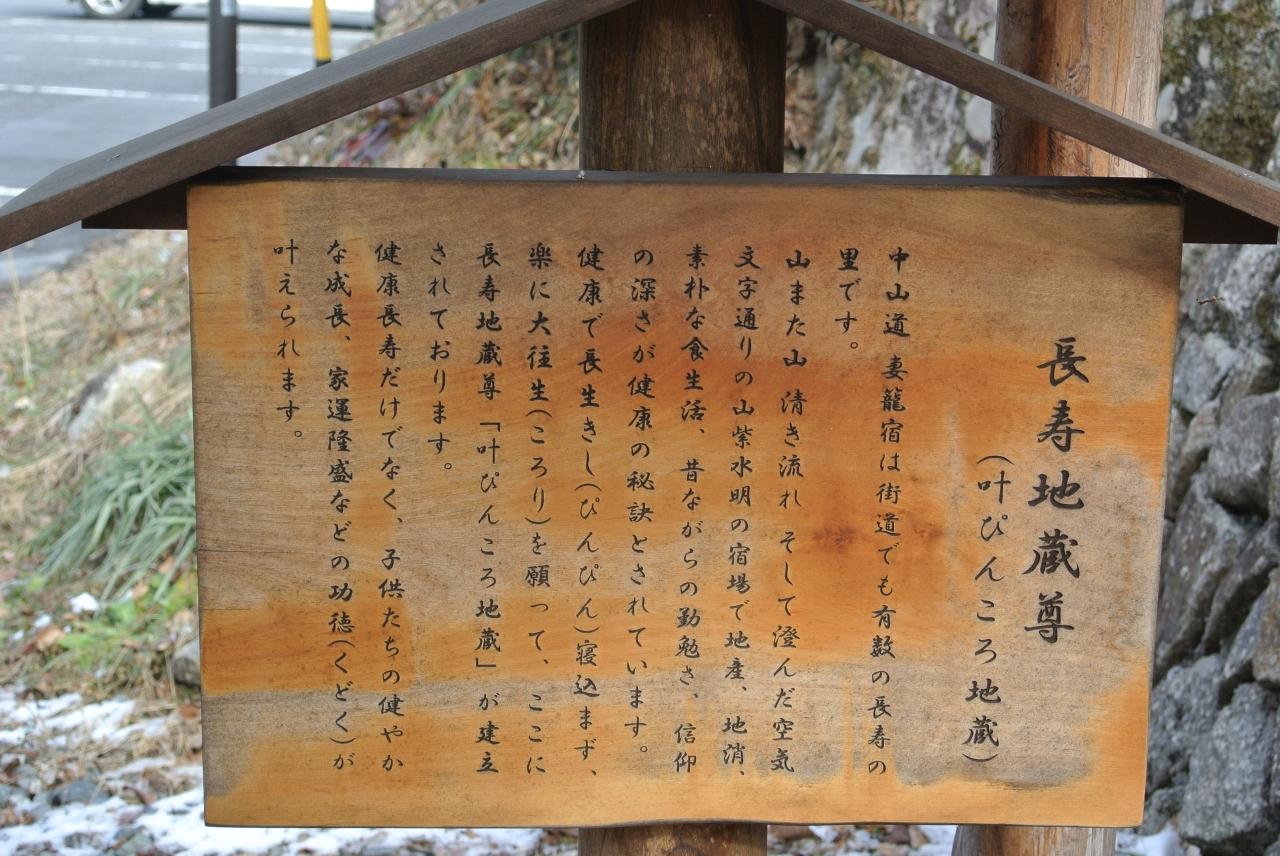 長寿地蔵尊
(叶ぴんころ地蔵)
中山道 妻籠宿は街道でも有数の長寿の
里です。
山また山 清き流れ そして澄んだ空気
文字通りの山紫水明の宿場で地産、地消、
素朴な食生活、昔ながらの勤勉さ、信仰
の深さが健康の秘訣とされています。
健康で長生きし(ぴんぴん)寝込まず、
楽に大往生(ころり)を願って、ここに
長寿地蔵尊「叶ぴんころ地蔵」が建立
されております。
健康長寿だけでなく、子供たちの健やか
な成長、家運隆盛などの功徳(くどく)が
叶えられます。